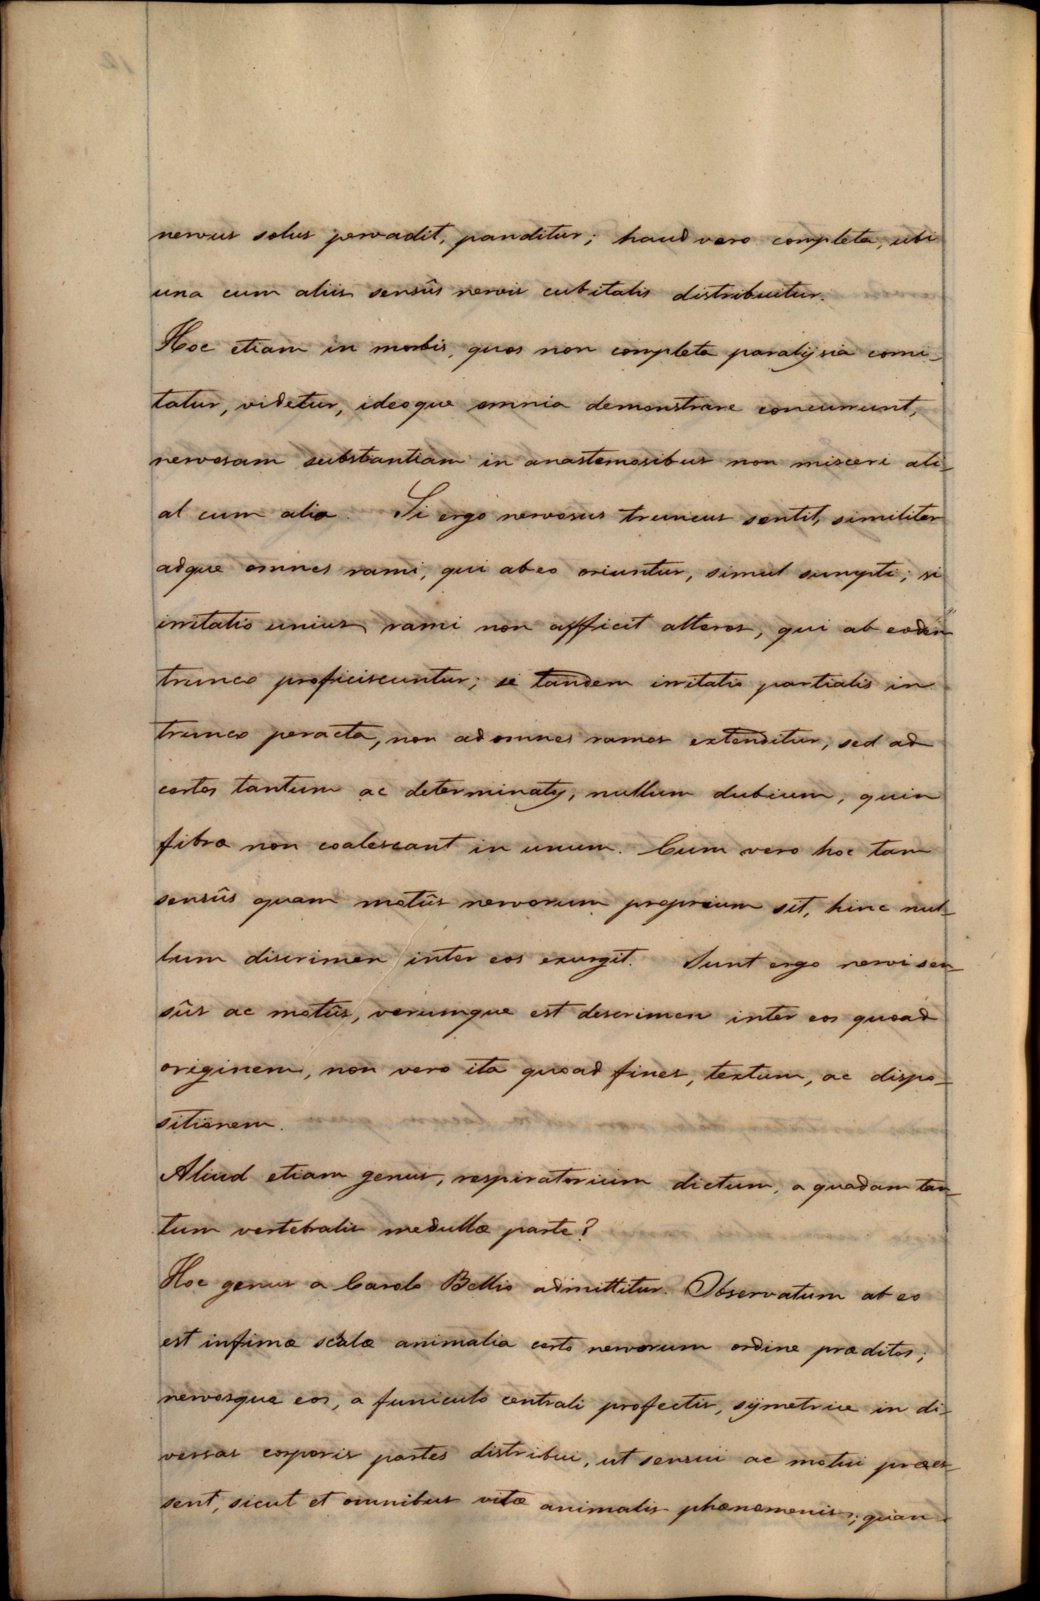 nervus solus pervadit, panditur; haud vero completa, ubi
una cum aliis sensûs nervis cubitalis distribuitur.
Hoc etiam in morbis, quos non completa paralysia comi-
tatur, videtur, ideoque omnia demonstrare concurrunt,
nervosam substantiam in anastomosibus non misceri ali-
al cum alia. Si ergo nervosus truncus sentit, similiter
adque omnes rami, qui ab eo oriuntur, simul sumpti; si
irritatio unius rami non afficit alteros, qui ab eodem
trunco proficiscuntur; si tandem irritatio partialis in
trunco peracta, non ad omnes ramos extenditur, sed ad
certos tantum ac determinatos, nullum dubium, quin
fibræ non coalescant in unum. Cum vero hoc tam
sensûs quam motûs nervorum proprium sit, hinc nul-
lum discrimen inter eos exurgit. Sunt ergo nervi sen-
sûs ac motûs, verumque est descrimen inter eos quoad
originem, non vero ita quoad fines, textum, ac dispo-
sitionem.
Aliud etiam genus, respiratorium dictum, a quadam tan-
tum vertebralis medullæ parte?
Hoc genus a Carolo Bellio admittitur. Observatum ab eo
est infimæ scalæ animalia certo nervorum ordine præditos;
nervosque eos, a funiculo centrali profectis, symetrice in di-
versas corporis partes distribui, ut sensui ac motui præes-
sent, sicut et omnibus vitæ animalis phænomenis; quan-